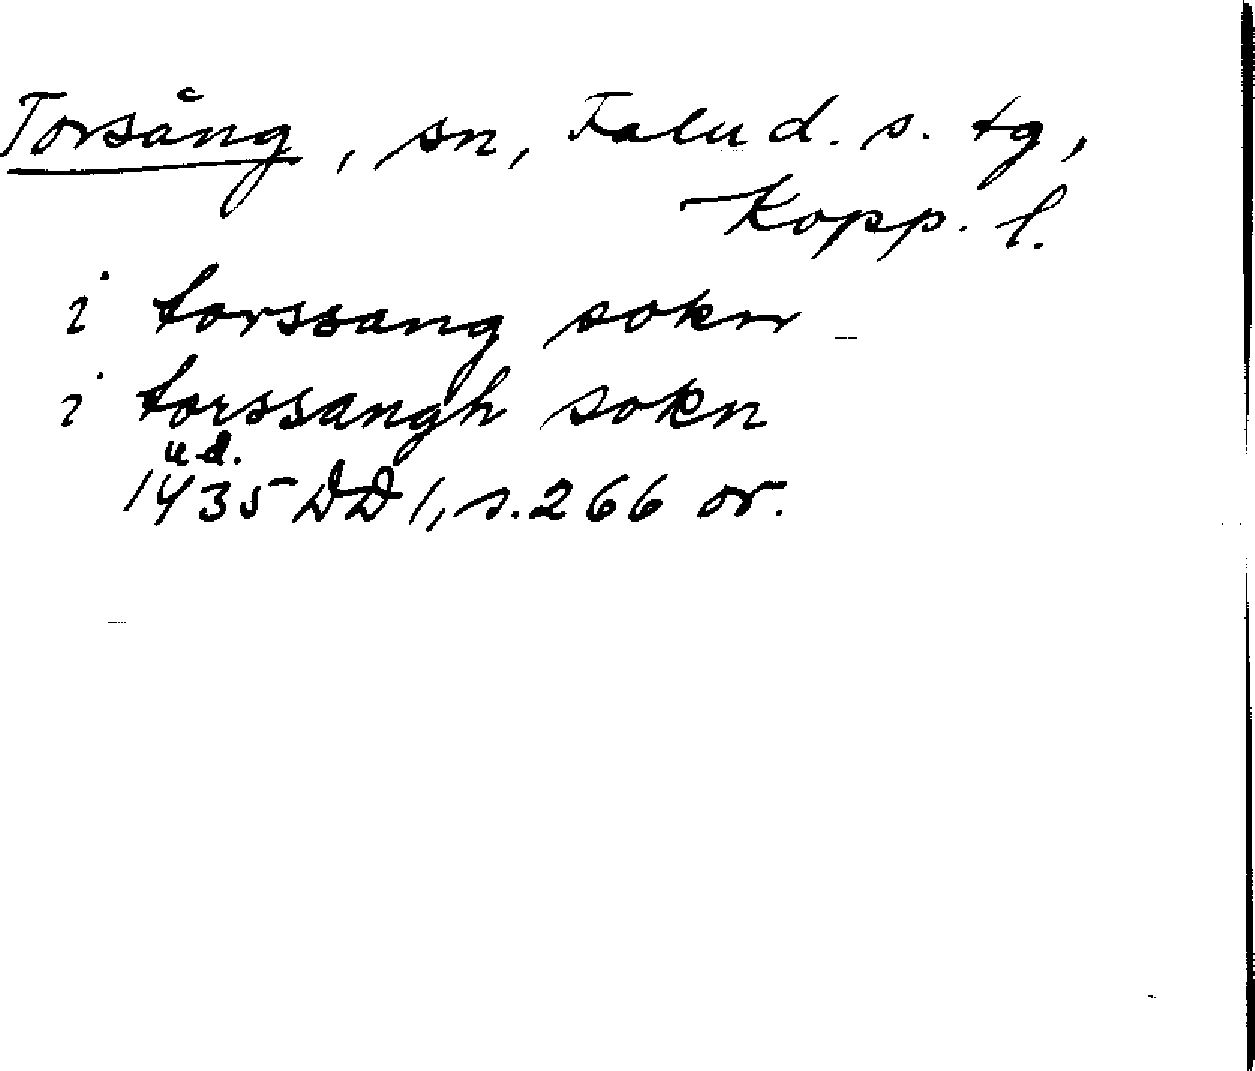 Torsång, sn, Falu d. s. tg,
Kopp. l.
i torssang sokn
i torssangh sokn
u.d.
1435 DD 1, s. 266 or.